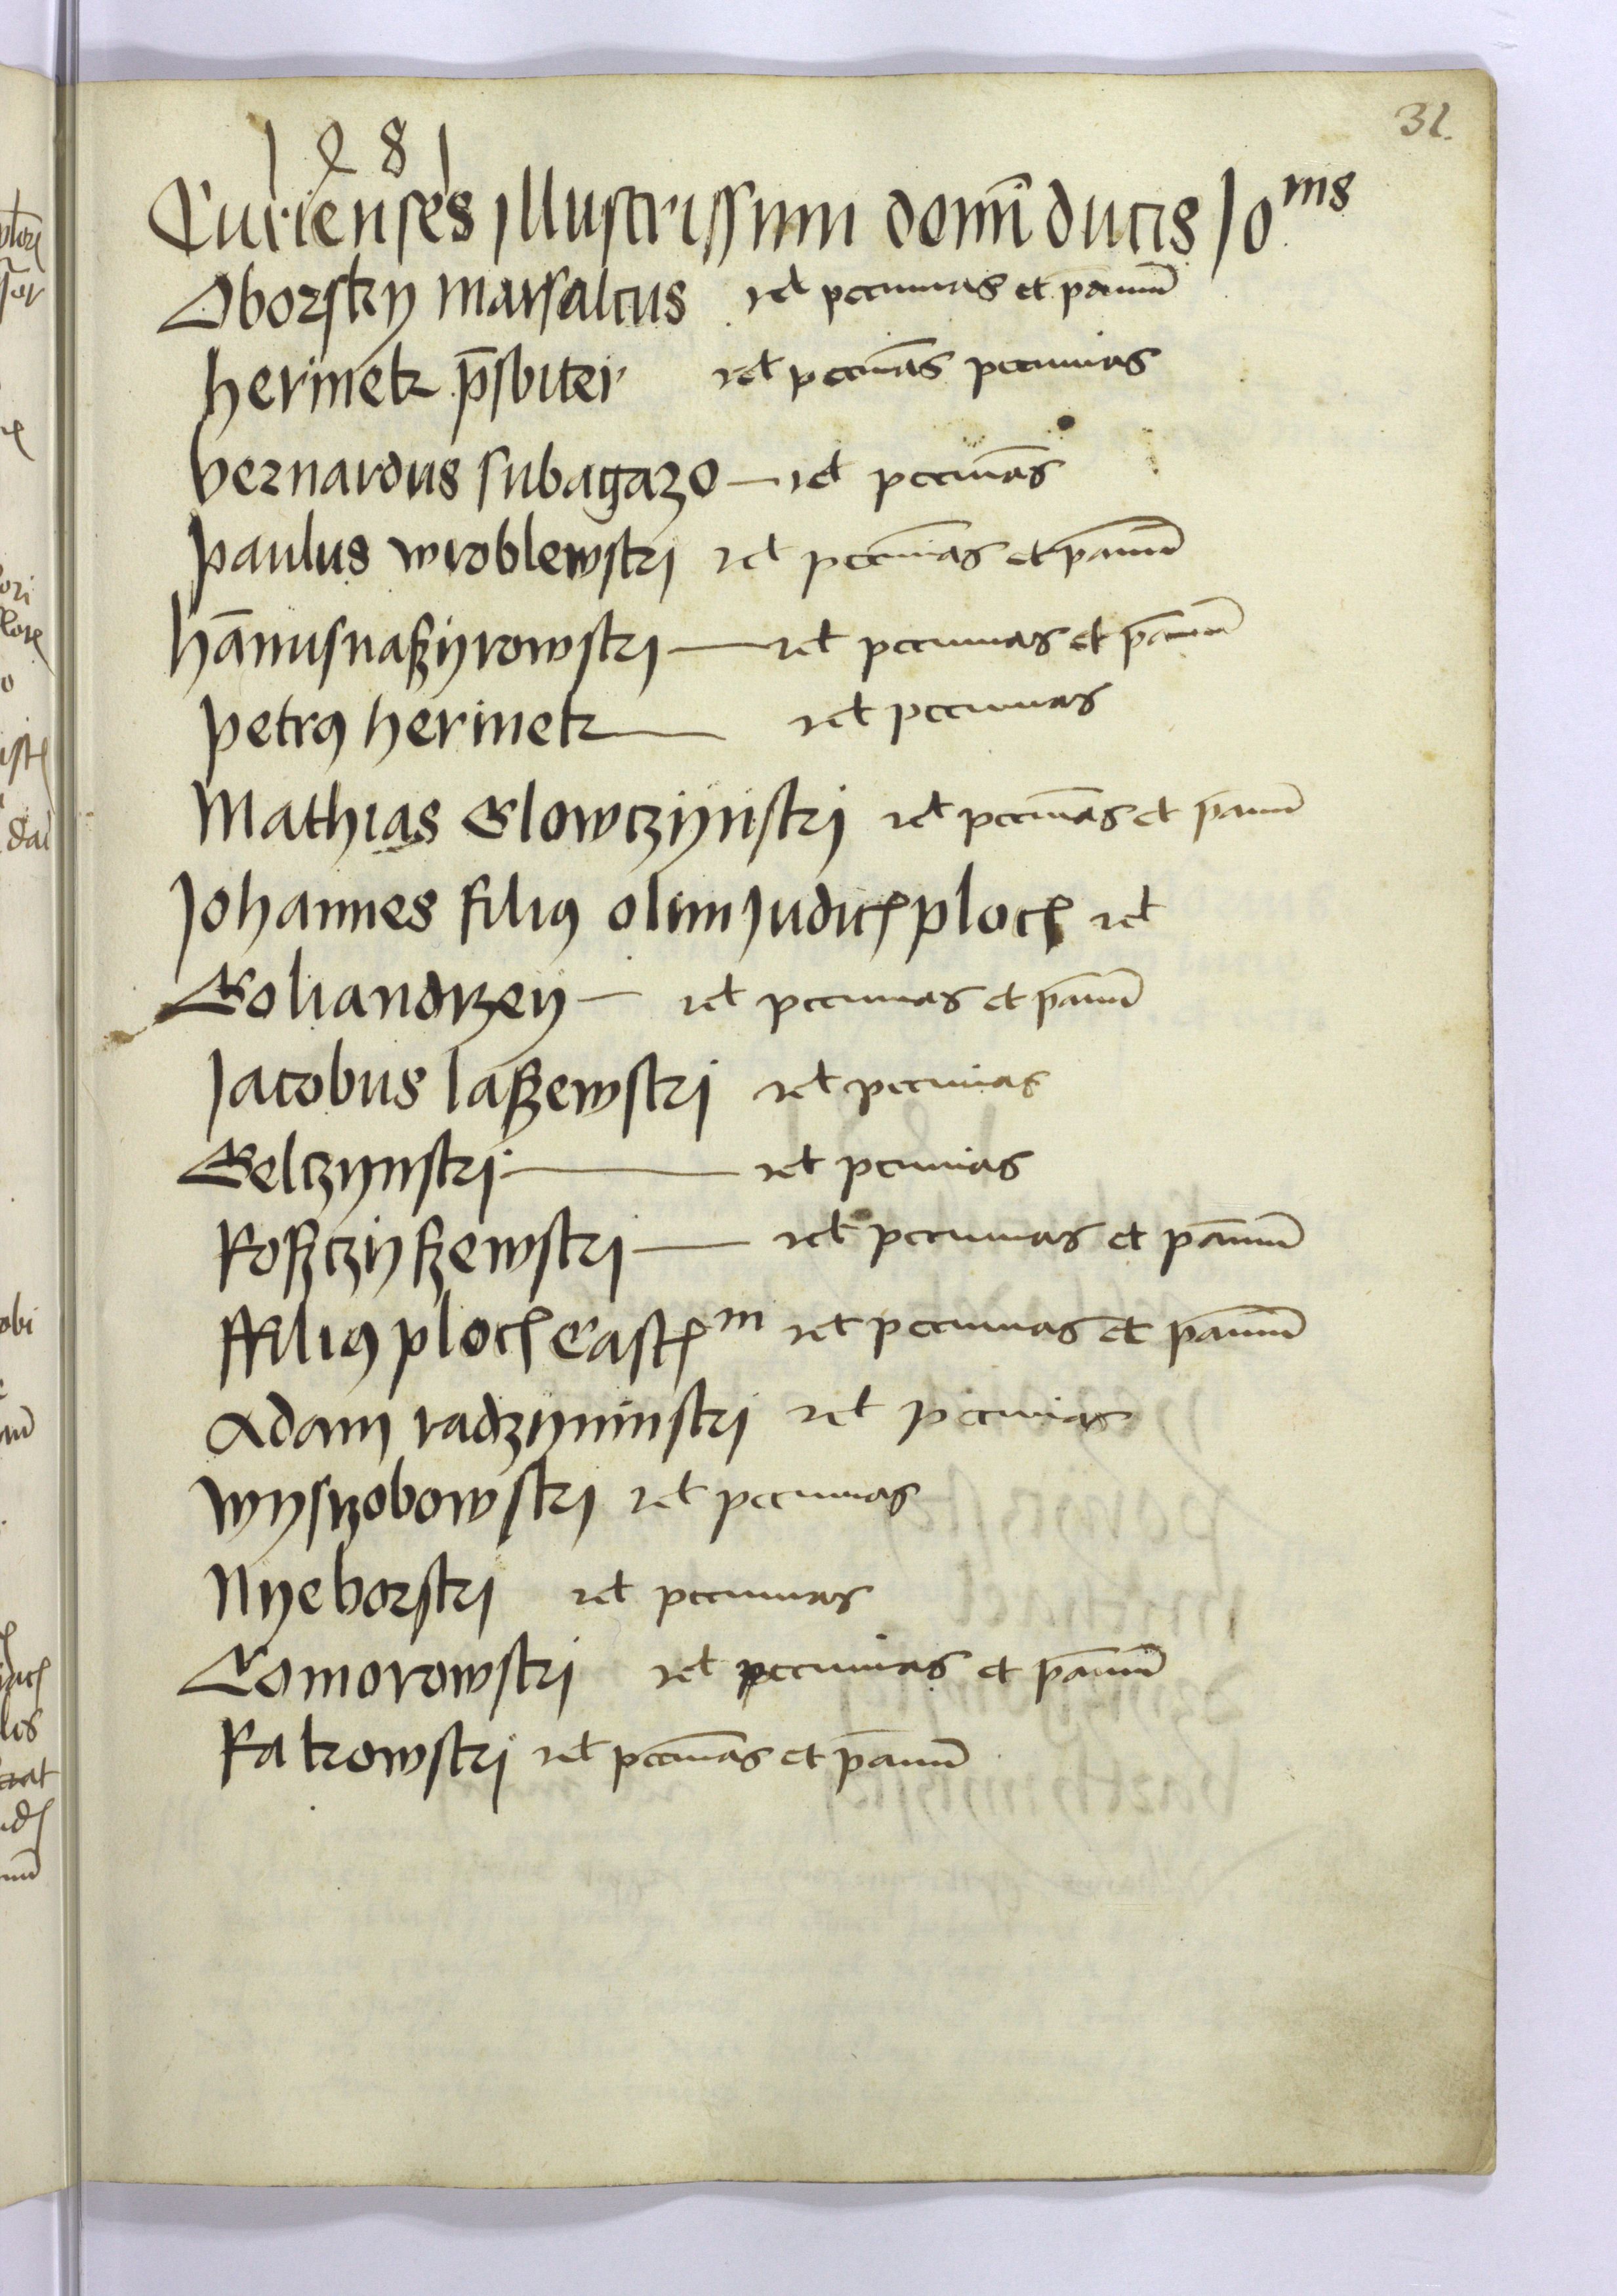 31.
1481
Curienses illustrissimi domi ducis Jo ms
Oborsky marsalcus rct peccunias et pannu
herinek prsbiter rct peccuias peccunias
bernardus subagazo — rct peccuias
paulus wroblewski rct peccunias et pannu
hanus naßyrowski — rct peccunias et pannu
petrus herinek — rct peccunias
Mathias Glowczynski rct peccuias et pannu
Johannes filius olim Judicis ploc rct
Goliandrzey — rct peccunias et pannu
Jacobus laßewski rct peccunias
Gelczynski — rct pcunias
Koßczyßewski — rct peccunias et pannu
ffilius ploc Cast m rct peccunias et pannu
Adam radzyminski rct pecunias
wyszobowski rct peccunias
Nyeborski rct peccunias
Comorowski rct peccunias et pannu
Kakowski rct peccuias et pannu